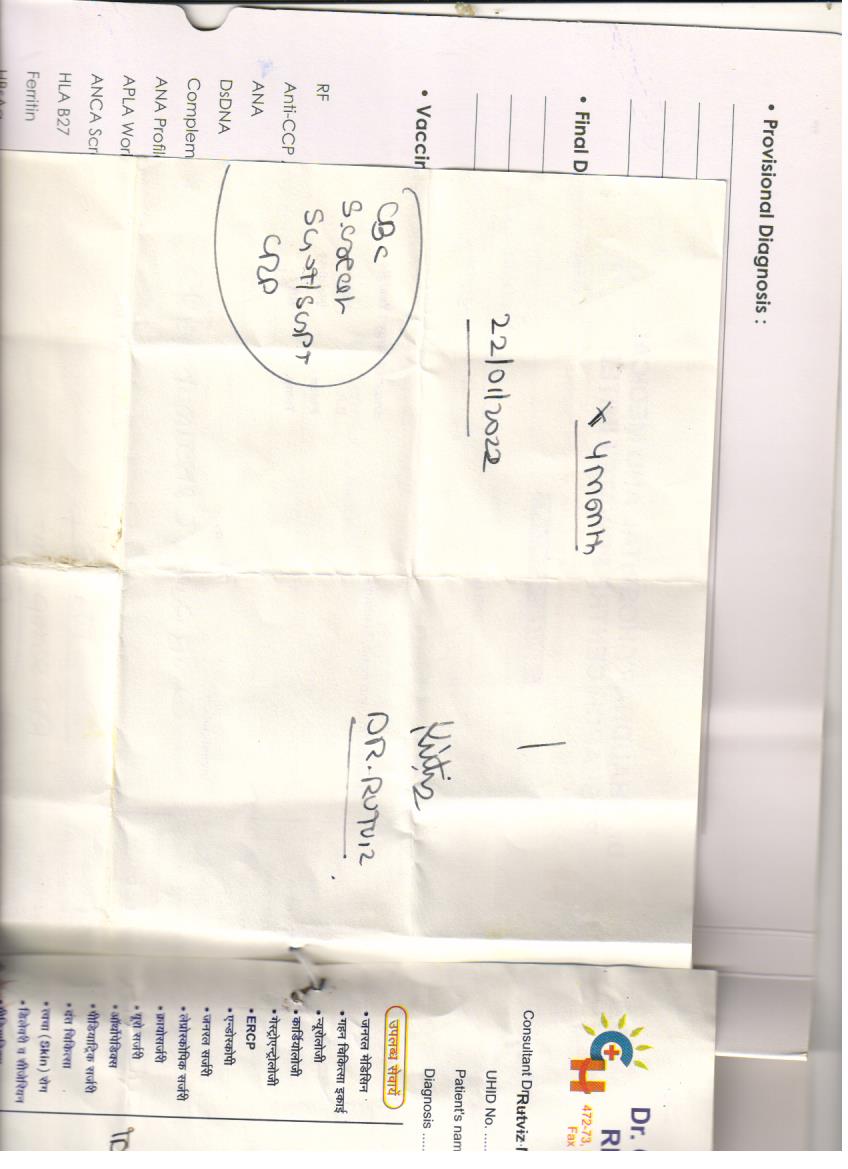 • Provisional Diagnosis :
• Final D
• Vaccin
RF
Anti-CCP
ANA
DsDNA
Complem
ANA Profil
APLA Wor
ANCA Scr
HLA B27
Ferritin
HBsAg
x 4 month
22/01/2022
CBC
S.creat
SGOT/SGPT
CRP
DR. RUTVIZ
Dr.
472-73,
Fax
Consultant Dr Rutviz
UHID No. ......
Patient's nam
Diagnosis .....
उपलब्ध सेवायें
• जनरल मेडिसिन
• गहन चिकित्सा इकाई
• न्यूरोलोजी
• कार्डियोलोजी
• गेस्ट्रोएन्ट्रोलोजी
• ERCP
• एन्डोस्कोपी
• जनरल सर्जरी
• लेप्रोस्कोपिक सर्जरी
• यूरो सर्जरी
• ऑर्थोपेडिक्स
• पीडियाट्रिक सर्जरी
• दंत चिकित्सा
• त्वचा (Skin) रोग
• डिलेवरी व सीजेरियन